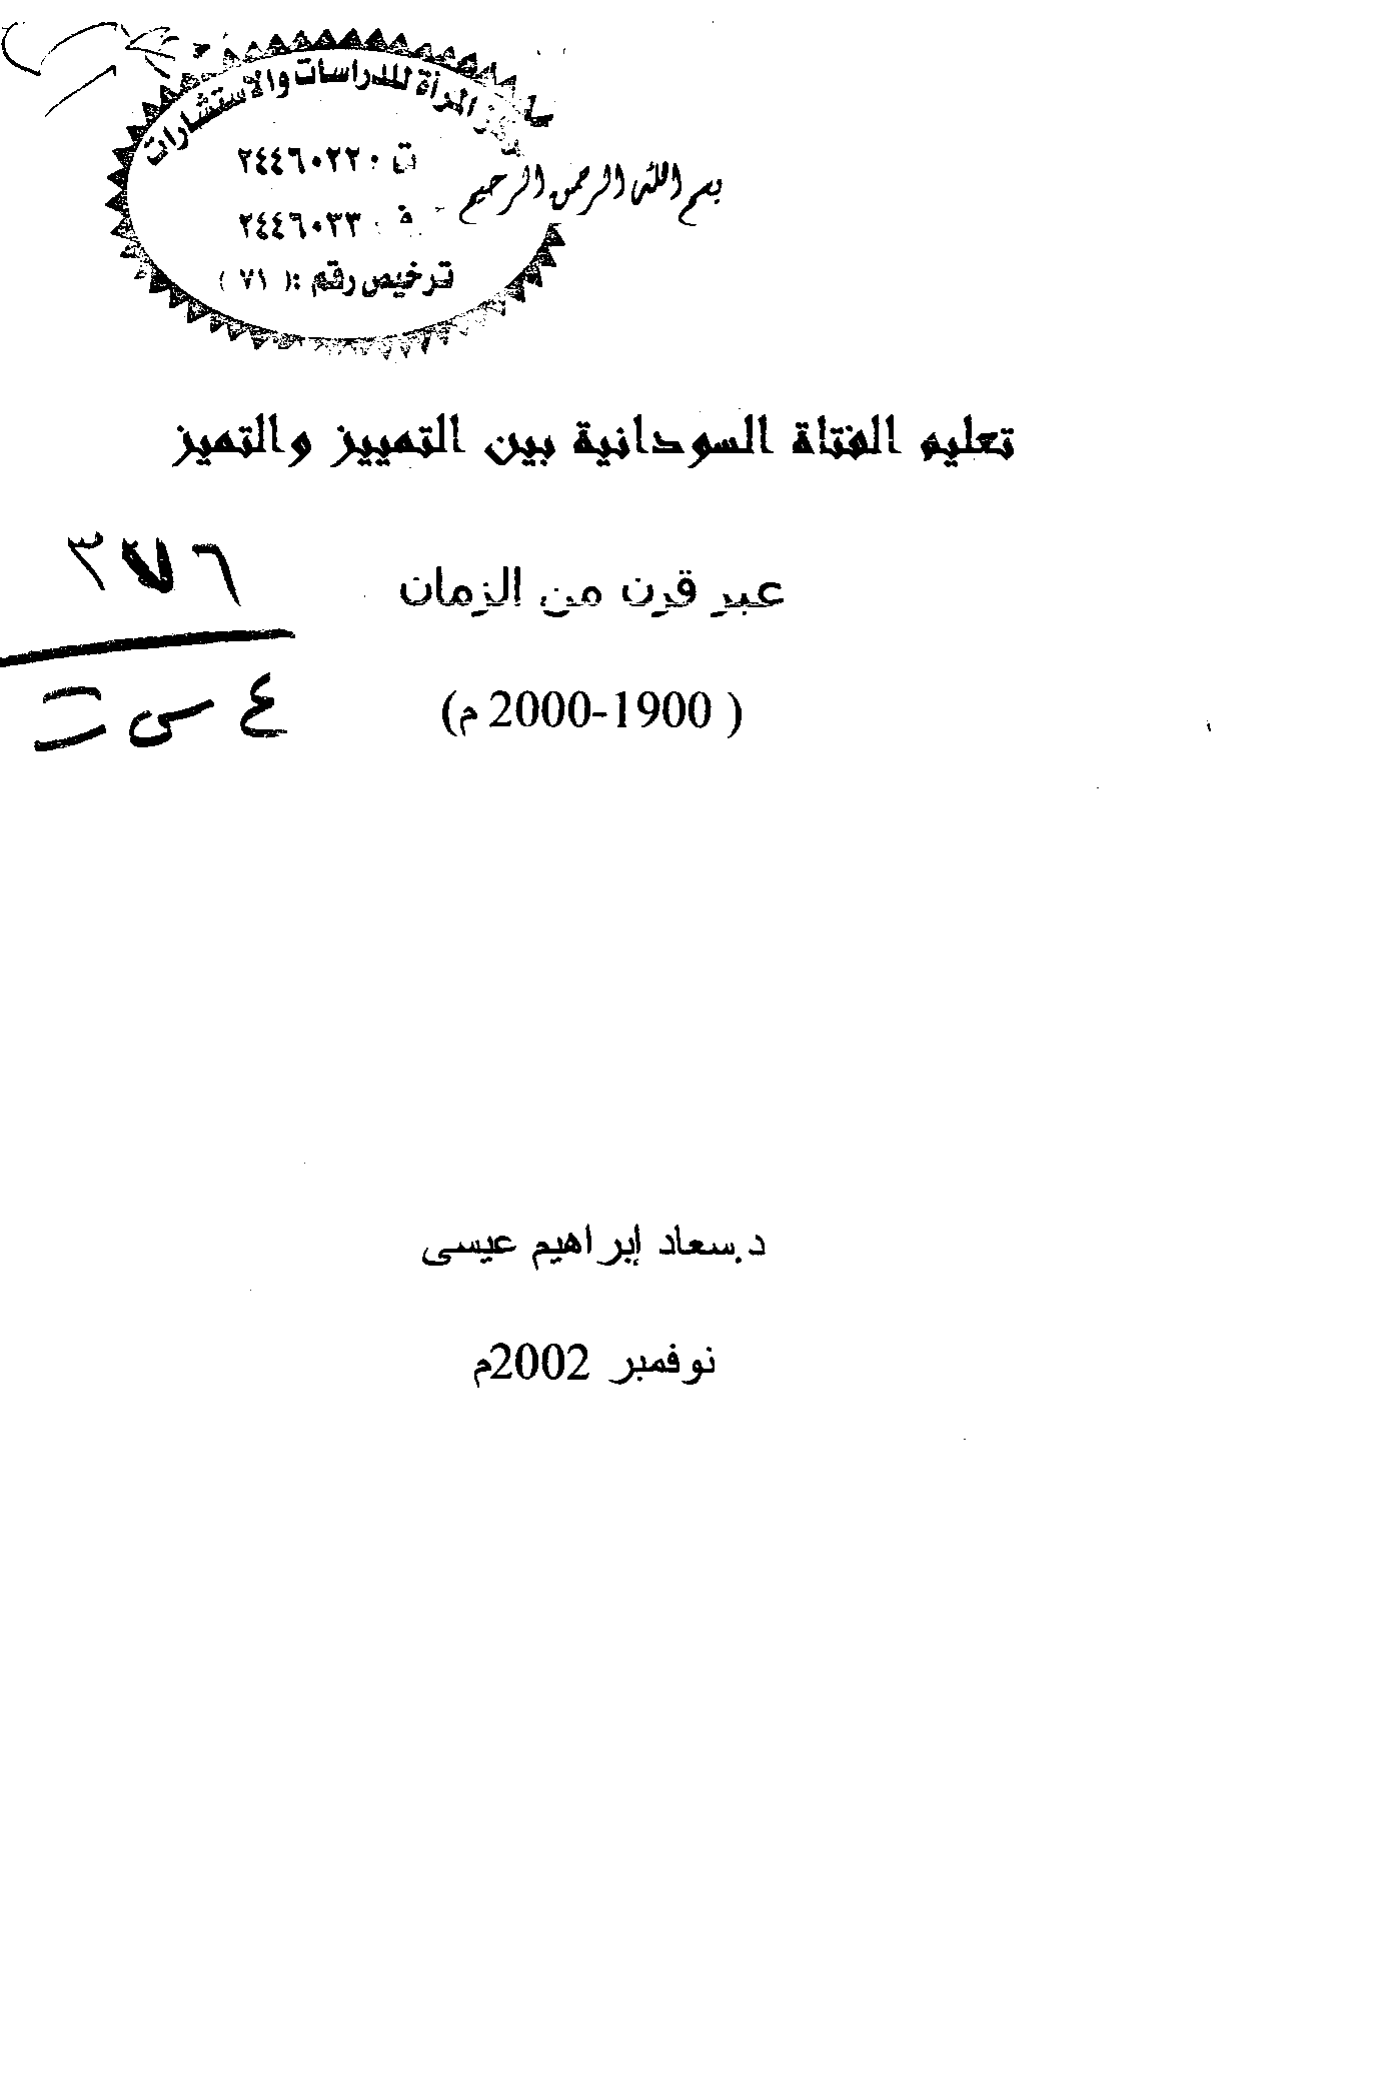 المرأة للدراسات والاستشارات
ت : ٢٤٤٦٠٢٢٠
ف : ٢٤٤٦٠٣٣
ترخيص رقم :( ٧١ )
بسم الله الرحمن الرحيم
تعليم الفتاة السودانية بين التمييز والتميز
٣٧٦
عبر قرن من الزمان
( 1900-2000 م)
د.سعاد إبراهيم عيسى
نوفمبر 2002م